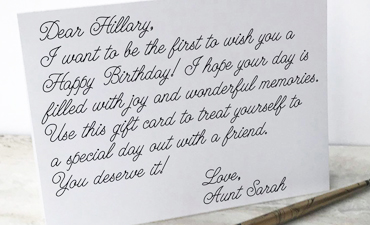 Dear Hillary,
I want to be the first to wish you a
Happy Birthday! I hope your day is
filled with joy and wonderful memories.
Use this gift card to treat yourself to
a special day out with a friend.
You deserve it!
Love,
Aunt Sarah